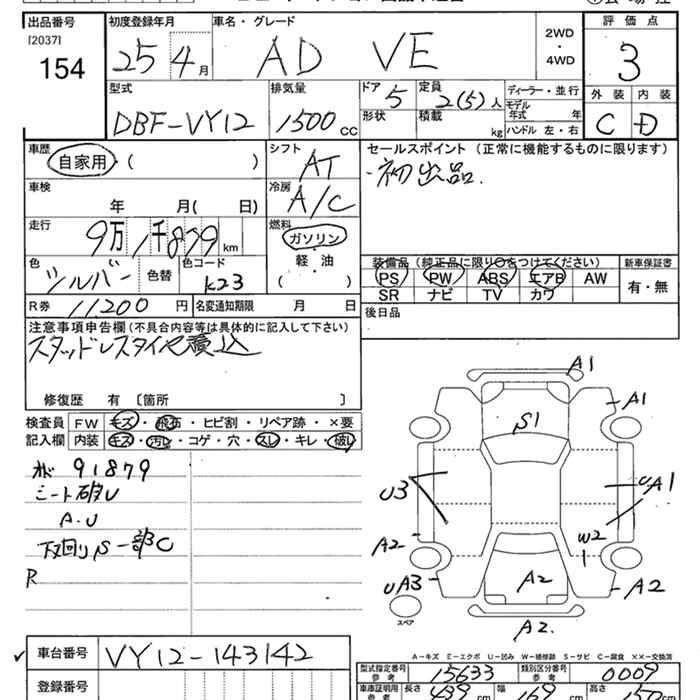 出品番号 初度登録年月 車名・グレード 評価点
[2037]
154 25年 4月 AD VE 2WD・4WD 3
型式 排気量 ドア 5 定員 2(5)人 ディーラー・並行 外装 内装
DBF-VY12 1500cc 形状 積載 kg モデル年式 年 C D
ハンドル 左・右
車歴 自家用・( ) シフト AT セールスポイント(正常に機能するものに限ります)
・初出品.
車検 年 月( 日) 冷房 A/C
走行 9万1千879km 燃料 ガソリン
軽・油
( )
色 シルバー 色替 色コード K23
装備品(純正品に限り○をつけてください) 新車保証書
PS PW ABS エアB AW 有・無
SR ナビ TV カワ
R券 11200円 名変通知期限 月 日 後日品
注意事項申告欄(不具合内容等は具体的に記入して下さい)
スタッドレスタイヤ積込
修復歴 有 〔箇所 〕
検査員 FW キズ・飛石・ヒビ割・リペア跡・×要
記入欄 内装 キズ・汚レ・コゲ・穴・スレ・キレ・破レ
91879
シート破レ
A.U
下回りS一部C
R
A1
A1
S1
U3
UA1
A2
W2
UA3
A2
A2
A2.
スペア
A-キズ E-エクボ U-凹み W-補修跡 S-サビ C-腐食 ××-交換済
✓ 車台番号 VY12-143142
型式指定番号 参考 15633 類別区分番号 参考 0009
登録番号
車庫証明用 参考 長さ 439cm 幅 169cm 高さ 150cm